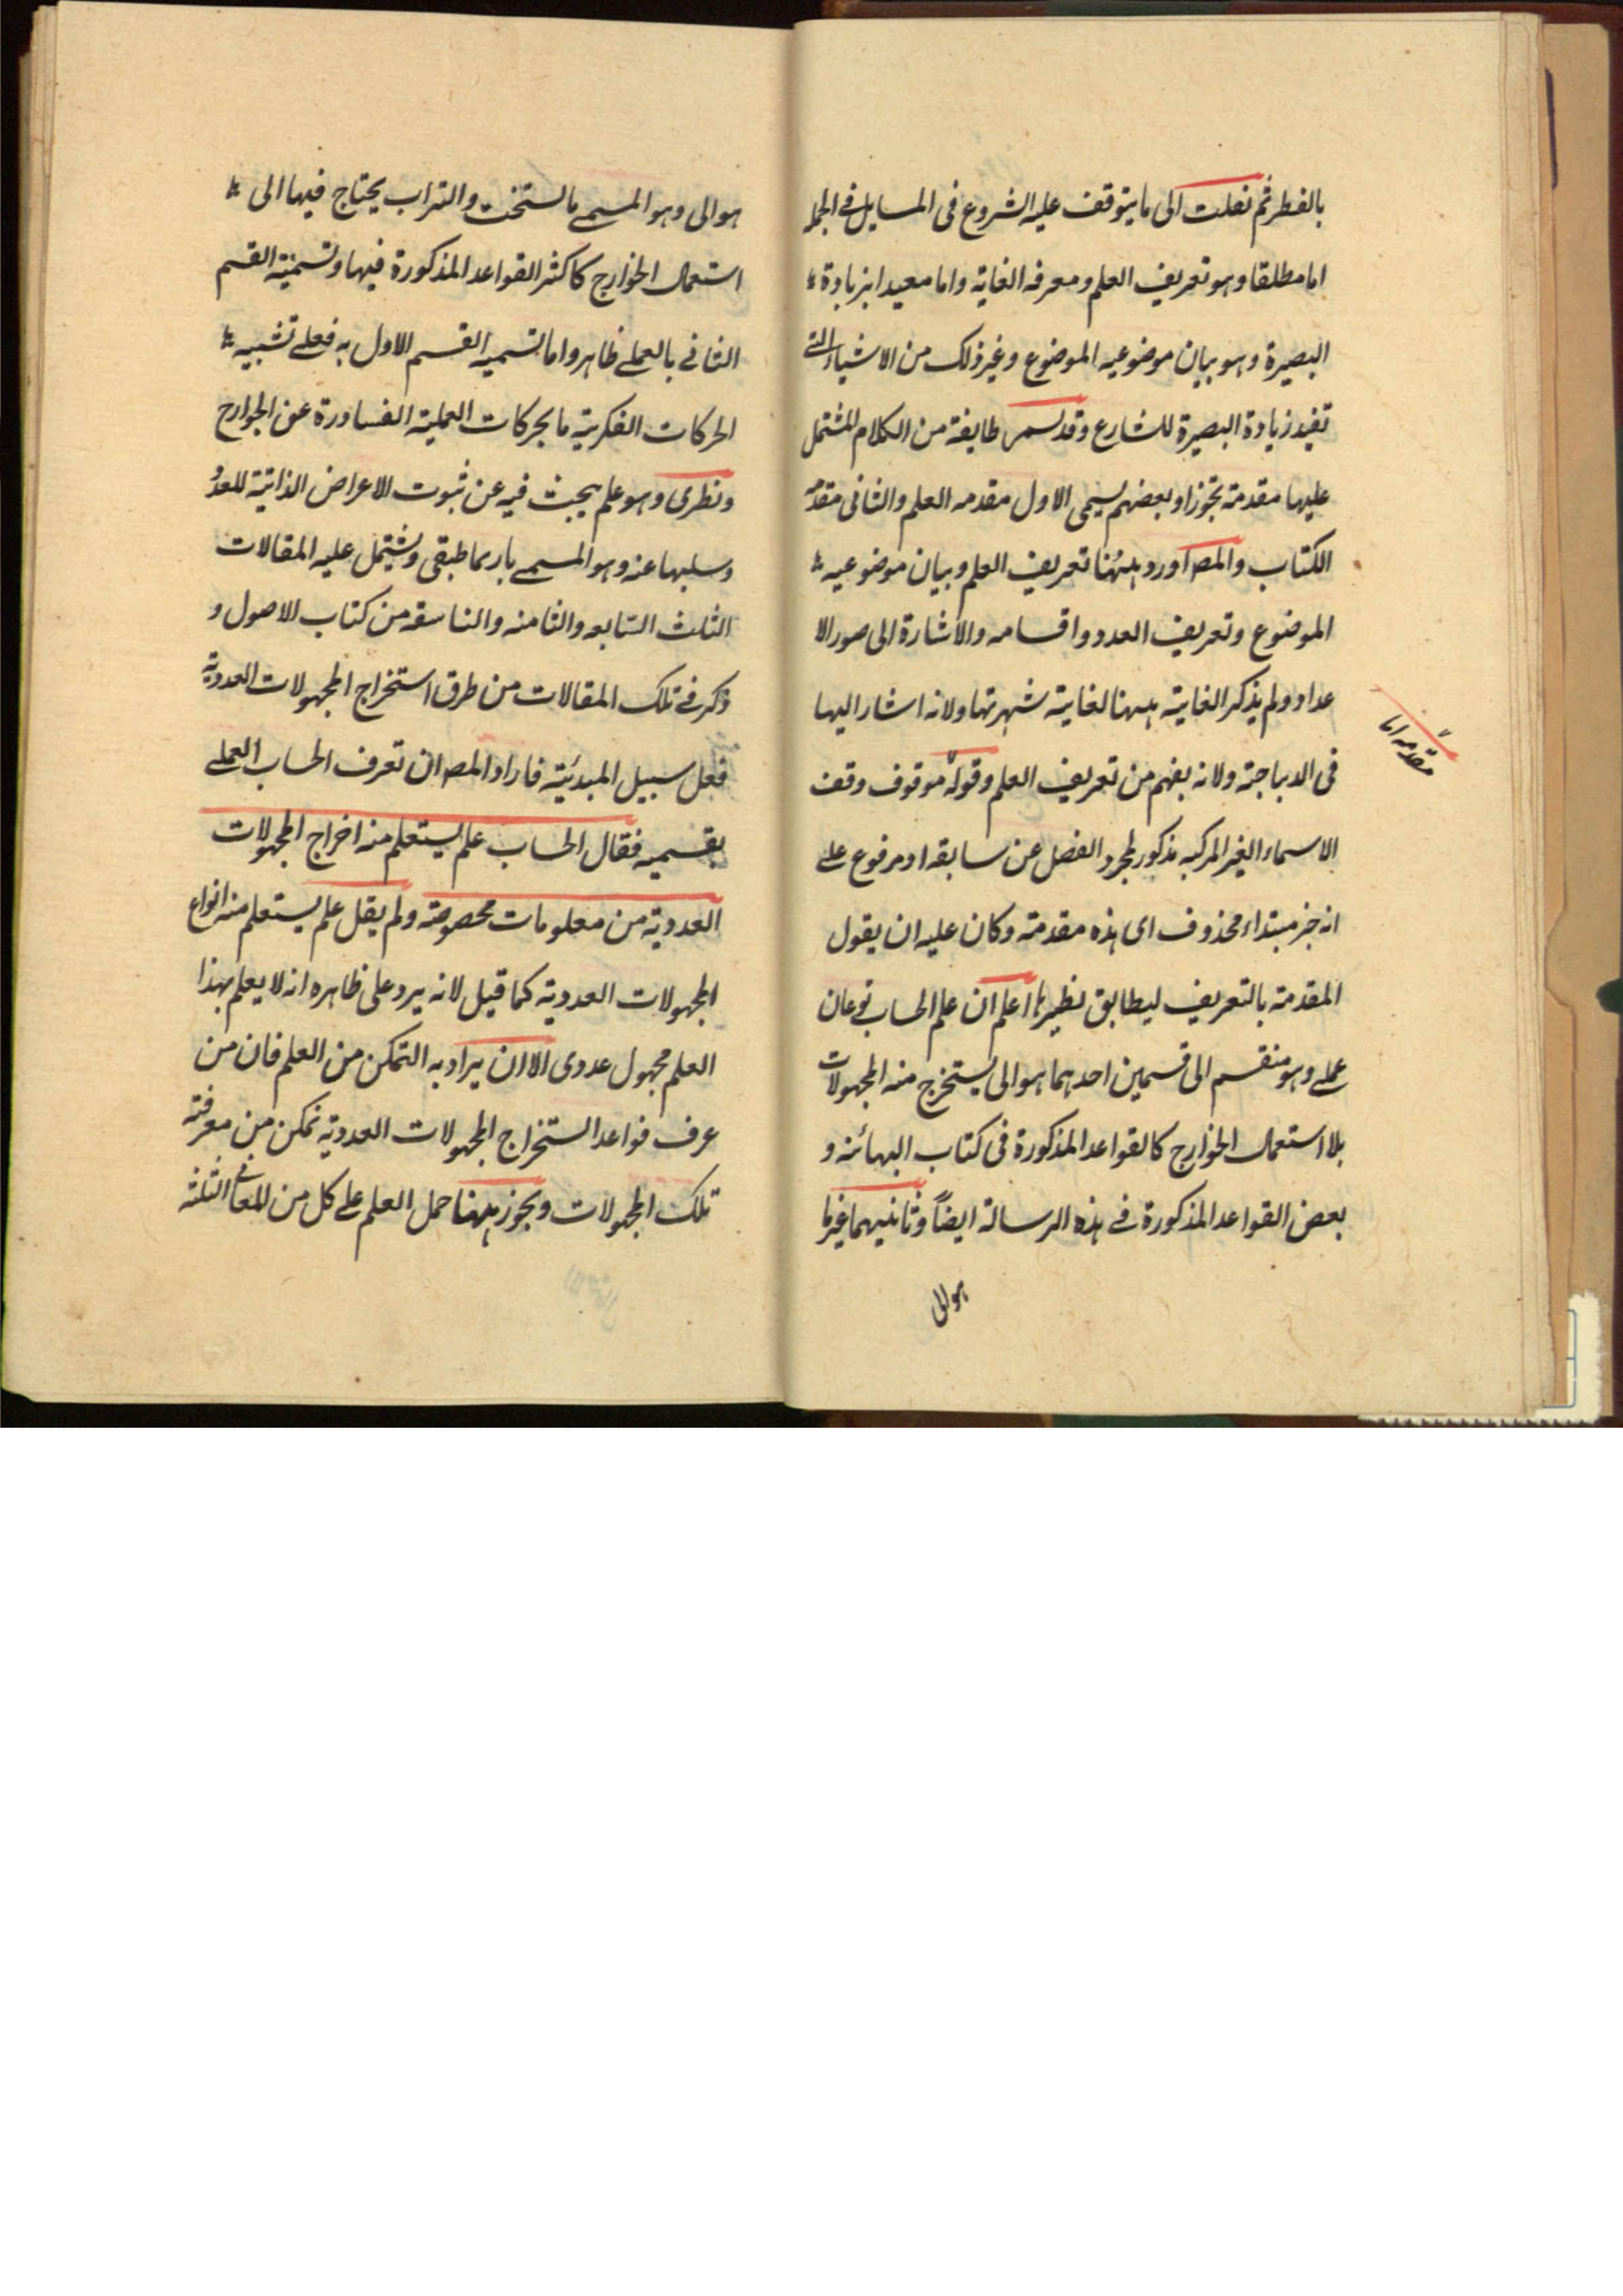 بالفطر ثم نقلت الى ما يتوقف عليه الشروع فى المسايل فى الجمله
اما مطلقا وهو تعريف العلم ومعرفه الغاية واما معيدا بزيادة
البصيرة وهو بيان موضوعيه الموضوع وغير ذلك من الاشياء التى
تفيد زيادة البصيرة للشارع وقد تسمى طايفة من الكلام المشتمل
عليها مقدمة تجوزا وبعضهم يسمى الاول مقدمه العلم والثانى مقدمه
الكتاب والمصـ اورد ههنا تعريف العلم وبيان موضوعيه
الموضوع وتعريف العدد واقسامه والاشارة الى صور الا
عداد ولم يذكر الغاية ههنا لغاية شهرتها ولانه اشار اليها
فى الديباجة ولانه يفهم من تعريف العلم وقوله موقوف وقف
الاسماء الغير المركبه مذكور لمجرد الفصل عن سابقه او مرفوع على
انه خبر مبتداء محذوف اى هذه مقدمة وكان عليه ان يقول
المقدمة بالتعريف ليطابق نظيرها اعلم ان علم الحساب نوعان
عملى وهو منقسم الى قسمين احدهما هوائى يستخرج منه المجهولات
بلا استعمال الجوارح كالقواعد المذكورة فى كتاب البهائنه و
بعض القواعد المذكورة فى هذه الرسالة ايضاً وثانيهما غير
هوالى
مقدمه اما
هوالى وهو المسمى بالتخت والتراب يحتاج فيها الى
استعمال الجوارح كاكثر القواعد المذكورة فيها وتسمية القسم
الثانى بالعملى ظاهر واما تسميه القسم الاول به فعلى تشبيه
الحركات الفكرية بالحركات العملية الصادرة عن الجوارح
ونظرى وهو علم يبحث فيه عن ثبوت الاعراض الذاتية للعدد
وسلبها عنه وهو المسمى بارثماطيقى ويشتمل عليه المقالات
الثلث السابعه والثامنه والتاسعه من كتاب الاصول و
ذكر فى تلك المقالات من طرق استخراج المجهولات العددية
فعلى سبيل المبدئية فاراد المصـ ان تعرف الحساب العملى
بقسميه فقال الحساب علم يستعلم منه اخراج المجهولات
العددية من معلومات مخصوصة ولم يقل علم يستعلم منه انواع
المجهولات العددية كما قيل لانه يرد على ظاهره انه لا يعلم بهذا
العلم مجهول عددى الا ان يراد به التمكن من العلم فان من
عرف قواعد استخراج المجهولات العددية تمكن من معرفة
تلك المجهولات ويجوز ههنا حمل العلم على كل من المعانى الثلثة